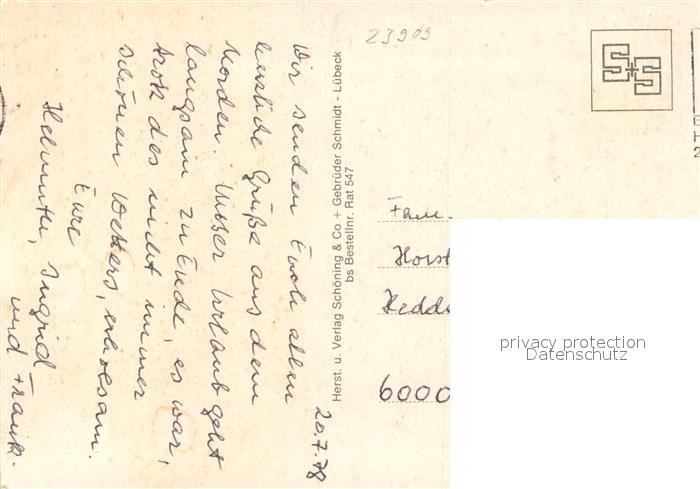 20.7.78
Wir senden Euch allen
herzliche Grüße aus dem
Norden. Unser Urlaub geht
langsam zu Ende, es war,
trotz des nicht immer
schönen Wetters, erholsam.
Eure
Helmuth, Ingrid
und Frank.
Herst. u. Verlag Schöning & Co + Gebrüder Schmidt - Lübeck
bs Bestellnr. Rat 547
23909
S+S
Fam.
Horst
Hedd
6000
privacy protection
Datenschutz